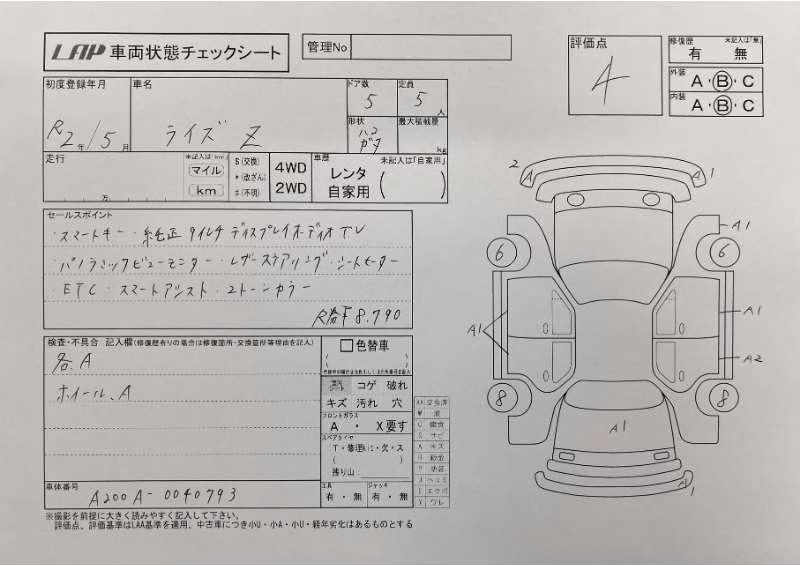 LAA 車両状態チェックシート
管理No
評価点
4
修復歴 未記入は「無」
有 無
外装 A・B・C
内装 A・B・C
初度登録年月
R2年/5月
車名
ライズ Z
ドア数
5
定員
5人
形状
ハコ
ガタ
最大積載量
kg
走行
未記入は「km」
マイル
km
万
$(交換)
*(改ざん)
#(不明)
4WD
2WD
車歴 未記入は「自家用」
レンタ
自家用
セールスポイント
・スマートキー・純正9インチディスプレイオーディオTV
・パノラミックビューモニター・レザーステアリング・シートヒーター
ETC・スマートアシスト・2トーンカラー
R券¥8.790
検査・不具合 記入欄(修復歴有りの場合は修復箇所・交換箇所等理由を記入)
各.A
ホイール.A
色替車
コゲ 破れ
キズ 汚れ 穴
フロントガラス
A ・ X要す
スペアタイヤ
T・修理キット・欠・ス
残り山:
工具
有・無
ジャッキ
有・無
車体番号
A200A-0040793
※撮影を前提に大きく読みやすく記入して下さい。
評価点、評価基準はLAA基準を適用、中古車につき小U・小A・小U・経年劣化はあるものとする
2
A
A1
A1
6
6
A1
A1
A2
8
8
A1
A1